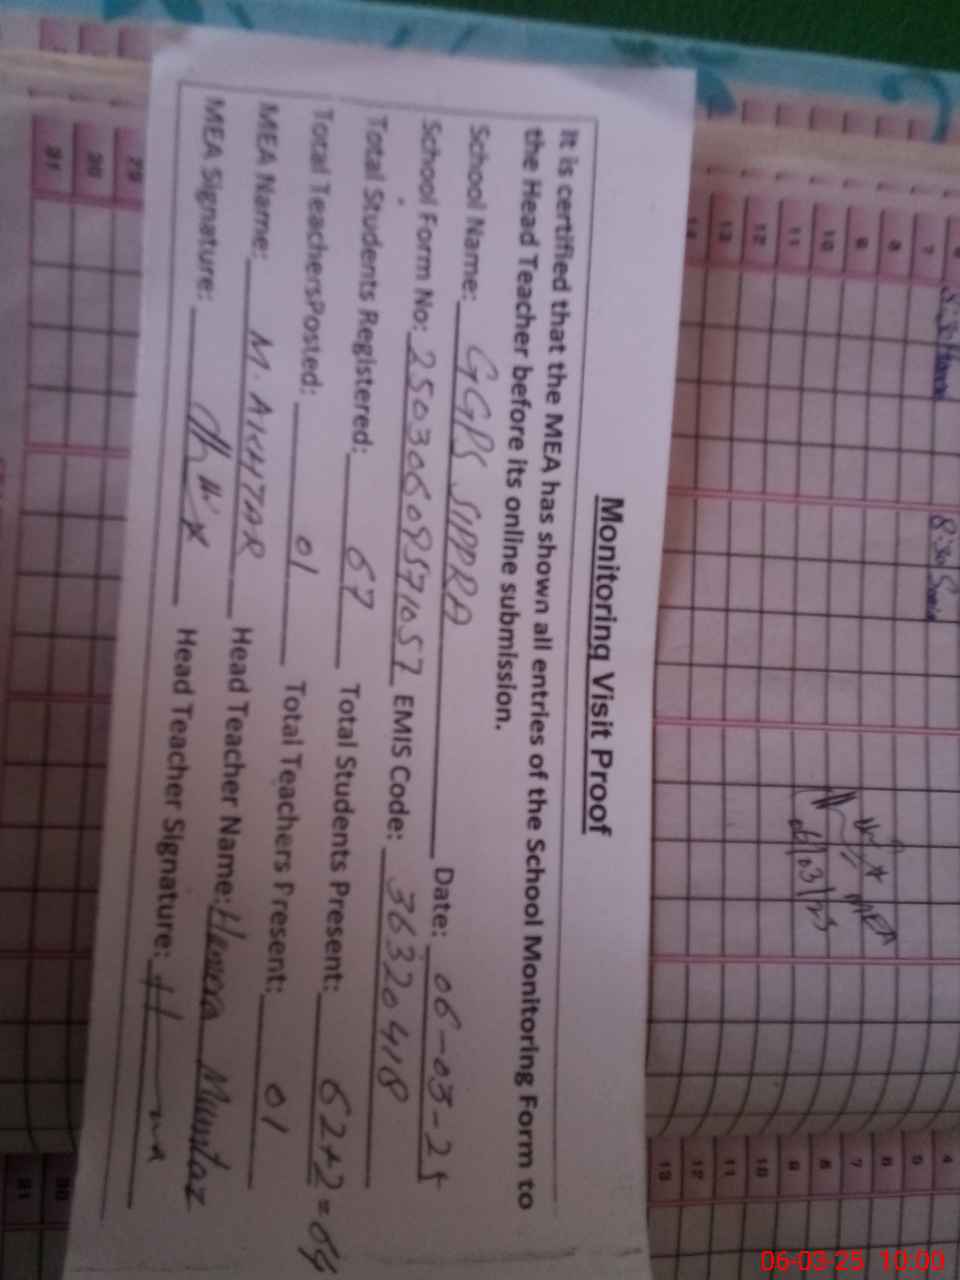 Monitoring Visit Proof
It is certified that the MEA has shown all entries of the School Monitoring Form to
the Head Teacher before its online submission.
School Name: GGPS SIPPRA Date: 06-03-25
School Form No: 25030609571057 EMIS Code: 36320418
Total Students Registered: 67 Total Students Present: 62+2=64
Total TeachersPosted: 01 Total Teachers Present: 01
MEA Name: M. AKHTAR Head Teacher Name: Mumtaz
MEA Signature: Head Teacher Signature:
7
8
9
10
11
12
13
14
29
30
31
MEA
06/03/25
4
5
6
7
8
9
10
11
12
13
30
31
06-03-25 10:00